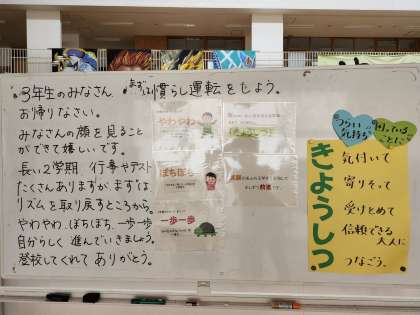 3年生のみなさん
お帰りなさい。
みなさんの顔を見ること
ができて嬉しいです。
長い2学期 行事やテスト
たくさんありますが、まずは
リズムを取り戻すところから。
やわやわ、ぼちぼち、一歩一歩
自分らしく進んでいきましょう。
登校してくれてありがとう。
まずは慣らし運転をしよう。
やわやわ
ぼちぼち
一歩一歩
つらい
気持ち
困っている
ことに
きょうしつ
気付いて
寄りそって
受けとめて
信頼できる
大人に
つなごう。